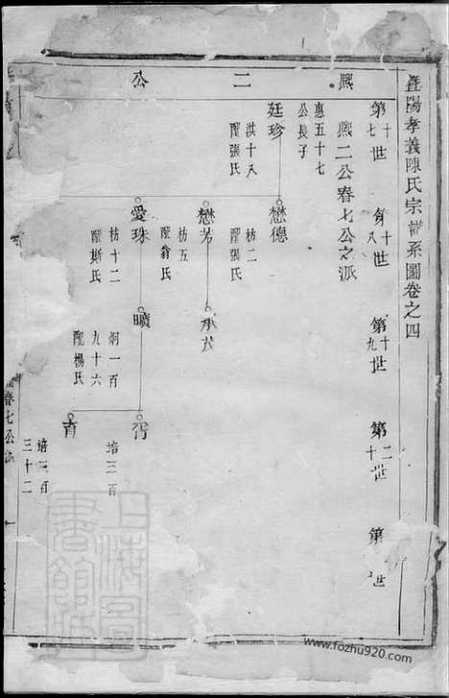 暨陽孝義陳氏宗譜系圖卷之四
熙二公
第十七世
第十八世
第十九世
第二十世
第 世
熙二公春七公之派
惠五十七
公長子
廷珍
洪十八
配張氏
懋德
枋二
配張氏
懋芳
枋五
配俞氏
承
愛珠
枋十二
配斯氏
曠
炯一百
九十六
配楊氏
培三百
培三百
三十二
春七公派
上海圖書館藏
www.fozhu920.com